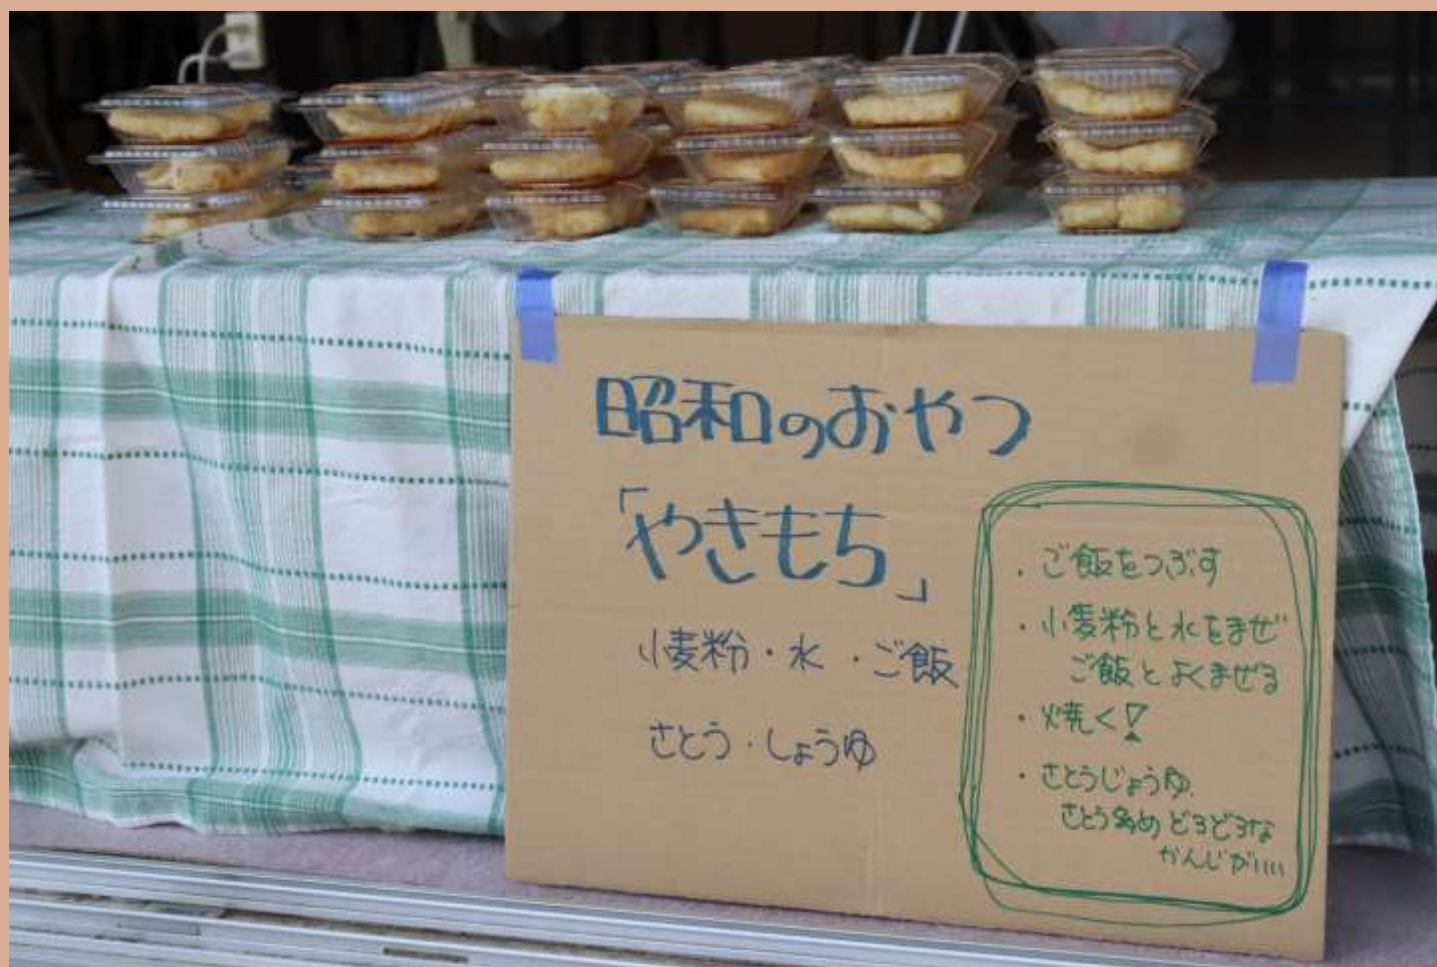 昭和のおやつ
「やきもち」
小麦粉・水・ご飯
さとう・しょうゆ
・ご飯をつぶす
・小麦粉と水をまぜ
ご飯とよくまぜる
・焼く!
・さとうじょうゆ
さとう多め どろどろな
かんじがいい